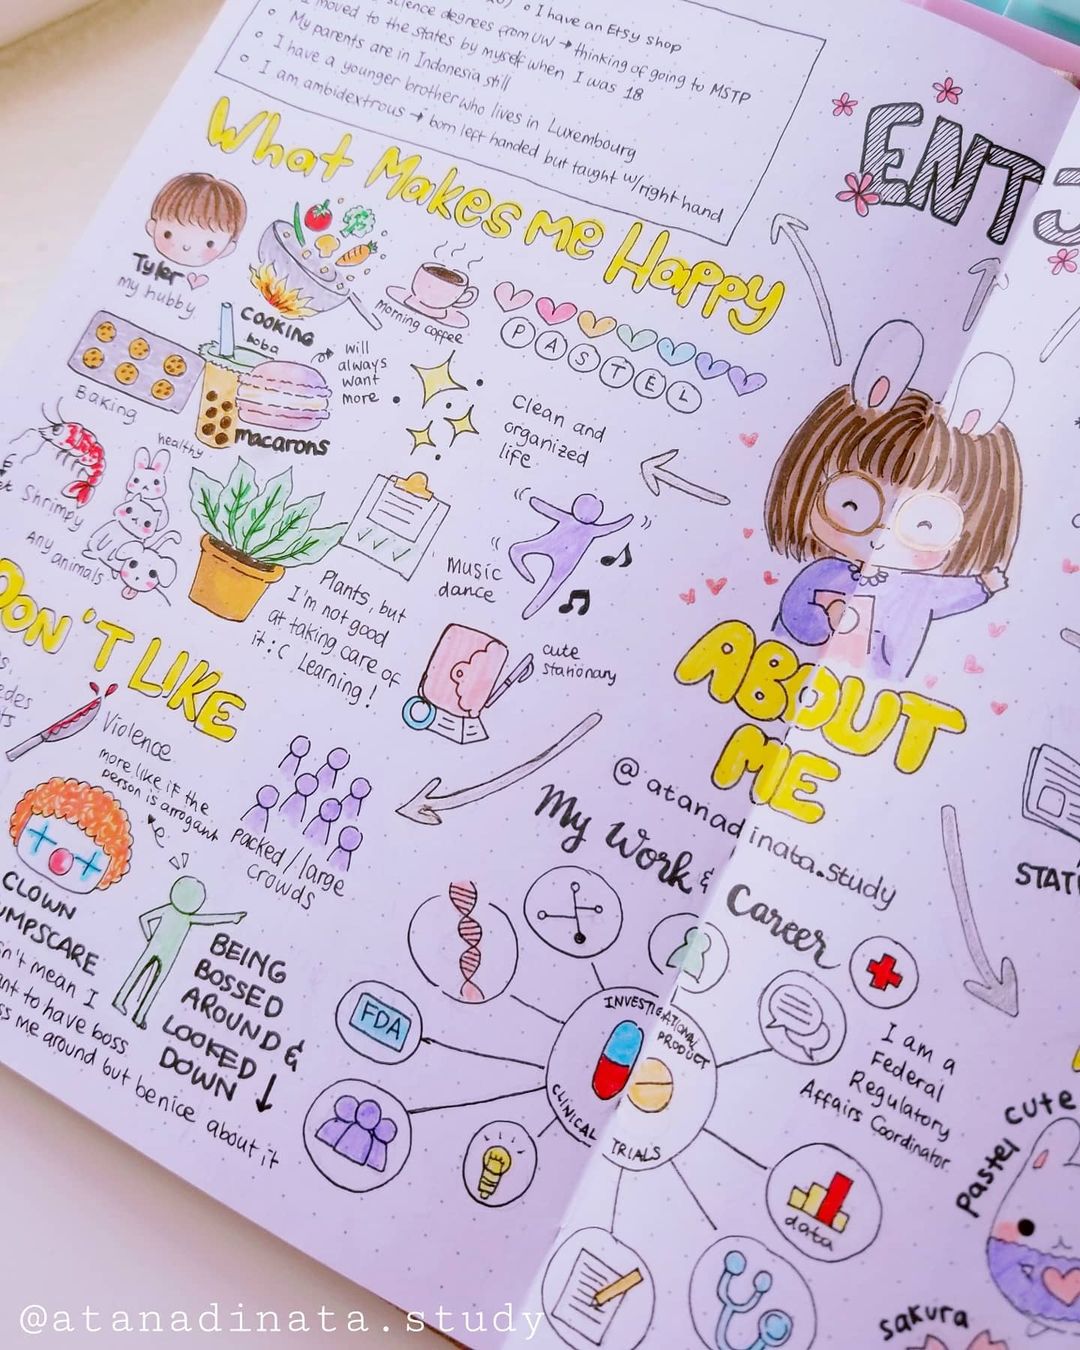 I have an Etsy shop
science degrees from UW → thinking of going to MSTP
I moved to the states by myself when I was 18
My parents are in Indonesia still
I have a younger brother who lives in Luxembourg
I am ambidextrous → born left handed but taught w/ right hand
ENTJ
What Makes me Happy
Tyler
my hubby
COOKING
morning coffee
PASTEL
Baking
boba
macarons
will
always
want
more
Clean and
organized
life
Shrimpy
Any animals
healthy
Plants, but
I'm not good
at taking care of
it :C Learning!
Music
dance
cute
stationary
DON'T LIKE
Violence
more like if the
person is arrogant
packed/large
crowds
CLOWN
JUMPSCARE
BEING
BOSSED
AROUND &
LOOKED
DOWN ↓
mean I
to have boss
me around but be nice about it
ABOUT
ME
@atanadinata.study
My Work & Career
INVESTIGATIONAL
PRODUCT
CLINICAL TRIALS
FDA
data
I am a
Federal
Regulatory
Affairs Coordinator
cute
pastel
sakura
@atanadinata.study